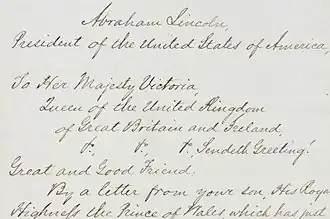 Abraham Lincoln,
President of the United States of America,
To Her Majesty Victoria,
Queen of the United Kingdom
of Great Britain and Ireland,
Sendeth Greeting!
Great and Good Friend,
By a letter from your son, His Royal
Highness the Prince of Wales which has just